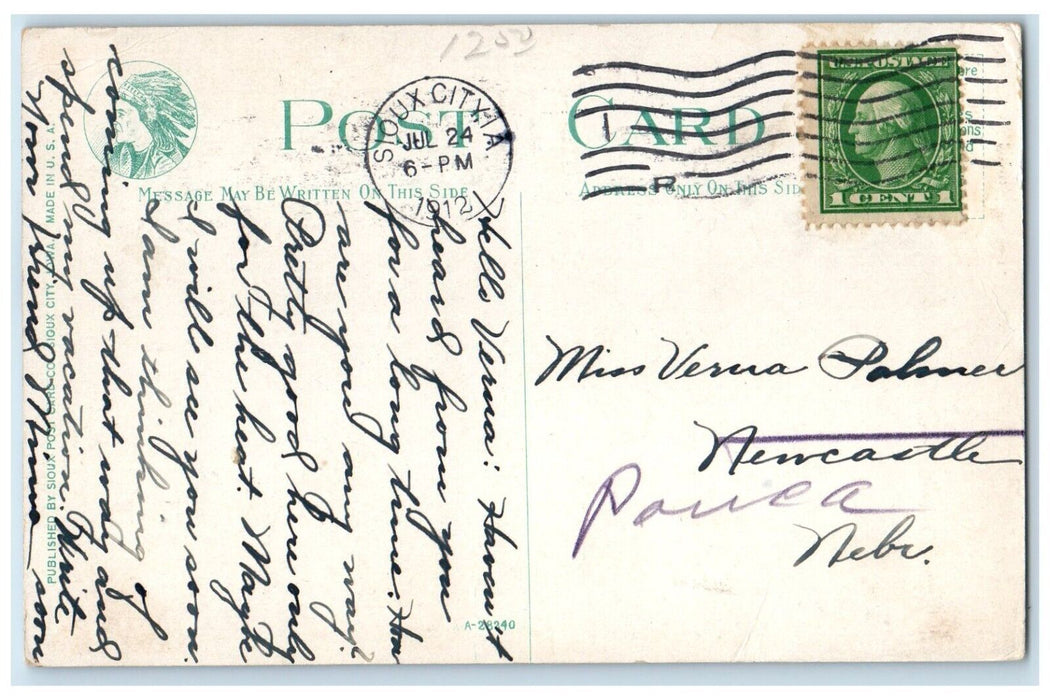 1250
POST CARD
SIOUX CITY, IA.
JUL 24
6-PM
1912
U.S. POSTAGE
1 CENT 1
MESSAGE MAY BE WRITTEN ON THIS SIDE
ADDRESS ONLY ON THIS SID
Hello Verna: Haven't
heard from you
for a long time. How
are you any way?
Pretty good here only
for the heat. Maybe
I will see you soon.
I am thinking of
coming up that way and
spend my vacation. Write soon
Your friend Minnie
Miss Verna Palmer
Newcastle
Ponca
Nebr.
PUBLISHED BY SIOUX POST CARD CO., SIOUX CITY, IOWA. MADE IN U. S. A.
A-28240